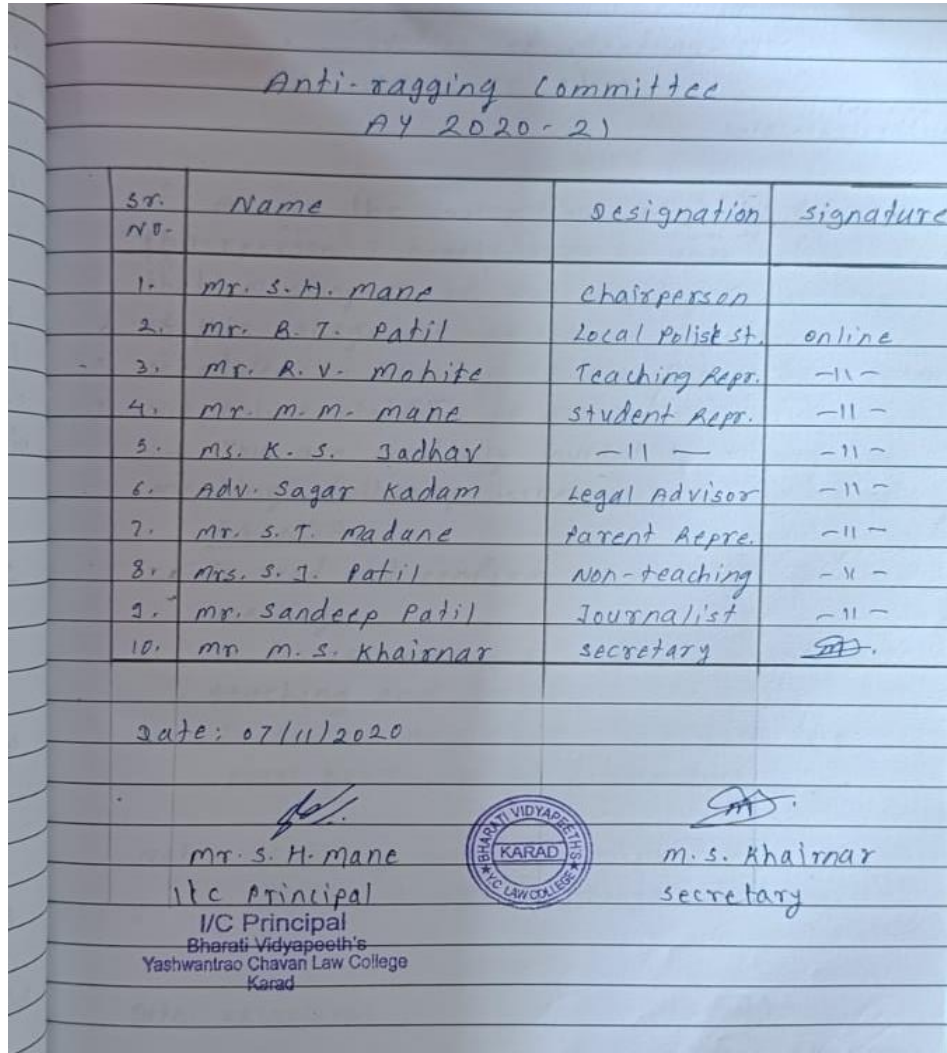 Anti-ragging Committee
AY 2020-21
Sr. No. Name Designation Signature
1. Mr. S. H. Mane Chairperson
2. Mr. B. T. Patil Local Polisk st. online
3. Mr. R. V. Mohite Teaching Repr. -11-
4. Mr. M. M. Mane Student Repr. -11-
5. Ms. K. S. Jadhav -11- -11-
6. Adv. Sagar Kadam Legal Advisor -11-
7. Mr. S. T. Madane Parent Repre. -11-
8. Mrs. S. J. Patil Non-teaching -11-
9. Mr. Sandeep Patil Journalist -11-
10. Mr M. S. Khairnar Secretary
Date: 07/11/2020
Mr. S. H. Mane
I/C Principal
I/C Principal
Bharati Vidyapeeth's
Yashwantrao Chavan Law College
Karad
BHARATI VIDYAPEETH'S
KARAD
Y.C. LAW COLLEGE
M. S. Khairnar
Secretary